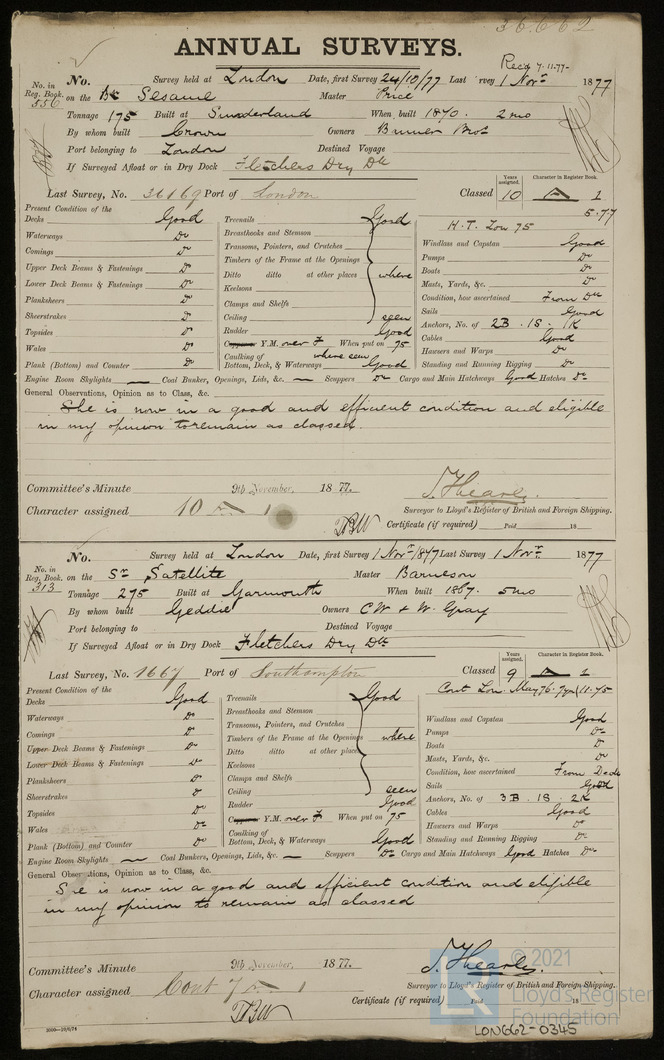 36662
ANNUAL SURVEYS.
Recd 7.11.77
No. in Reg. Book. 556
No. Survey held at London Date, first Survey 24/10/77 Last Survey 1 Novr 1877
on the Bk Sesame Master Price
Tonnage 175 Built at Sunderland When built 1870. 2 mo
By whom built Crown Owners Bros
Port belonging to London Destined Voyage
If Surveyed Afloat or in Dry Dock Fletchers Dry Dk
Last Survey, No. 36169 Port of London
Classed Years assigned. 10 Character in Register Book. A 1
5.77
H.T. Lon 75
Present Condition of the
Decks Good
Waterways Do
Comings Do
Upper Deck Beams & Fastenings Do
Lower Deck Beams & Fastenings Do
Planksheers Do
Sheerstrakes Do
Topsides Do
Wales Do
Plank (Bottom) and Counter Do
Treenails Good
Breasthooks and Stemson
Transoms, Pointers, and Crutches
Timbers of the Frame at the Openings
Ditto ditto at other places where
Keelsons
Clamps and Shelfs
Ceiling seen
Rudder Good
Copper Y.M. over F When put on 75
Caulking of where seen
Bottom, Deck, & Waterways Good
Windlass and Capstan Good
Pumps Do
Boats Do
Masts, Yards, &c. Do
Condition, how ascertained From Dk
Sails Good
Anchors, No. of 2B. 1S. 1K
Cables Good
Hawsers and Warps Do
Standing and Running Rigging Do
Engine Room Skylights — Coal Bunker, Openings, Lids, &c. — Scuppers Do Cargo and Main Hatchways Good Hatches Do
General Observations, Opinion as to Class, &c.
She is now in a good and efficient condition and eligible
in my opinion to remain as classed.
Committee's Minute 9th November, 1877.
Character assigned 10 A 1
J. Hearle.
Surveyor to Lloyd's Register of British and Foreign Shipping.
Certificate (if required) Paid 18
No. in Reg. Book. 313
No. Survey held at London Date, first Survey 1 Novr 1847 Last Survey 1 Novr. 1877
on the Sr Satellite Master Barneson
Tonnage 275 Built at Garmouth When built 1867. 5 mo
By whom built Geddie Owners C W & W. Gray
Port belonging to Destined Voyage
If Surveyed Afloat or in Dry Dock Fletchers Dry Dk
Last Survey, No. 1667 Port of Southampton
Classed Years assigned. 9 Character in Register Book. A 1
Cont Lon. May 76. 7yrs 11.75
Present Condition of the
Decks Good
Waterways Do
Comings Do
Upper Deck Beams & Fastenings Do
Lower Deck Beams & Fastenings Do
Planksheers Do
Sheerstrakes Do
Topsides Do
Wales Do
Plank (Bottom) and Counter Do
Treenails Good
Breasthooks and Stemson
Transoms, Pointers, and Crutches
Timbers of the Frame at the Openings where
Ditto ditto at other places
Keelsons
Clamps and Shelfs
Ceiling seen
Rudder Good
Copper Y.M. over F When put on 75
Caulking of
Bottom, Deck, & Waterways Good
Windlass and Capstan Good
Pumps Do
Boats Do
Masts, Yards, &c. Do
Condition, how ascertained From Deck
Sails Good
Anchors, No. of 3B. 1S. 2K
Cables Good
Hawsers and Warps Do
Standing and Running Rigging Do
Engine Room Skylights — Coal Bunkers, Openings, Lids, &c. — Scuppers Do Cargo and Main Hatchways Good Hatches Do
General Observations, Opinion as to Class, &c.
She is now in a good and efficient condition and eligible
in my opinion to remain as classed
Committee's Minute 9th November, 1877.
Character assigned Cont 7 A 1
J. Hearle.
Surveyor to Lloyd's Register of British and Foreign Shipping.
Certificate (if required) Paid 18
© 2021
Lloyd's Register
Foundation
LON662-0345